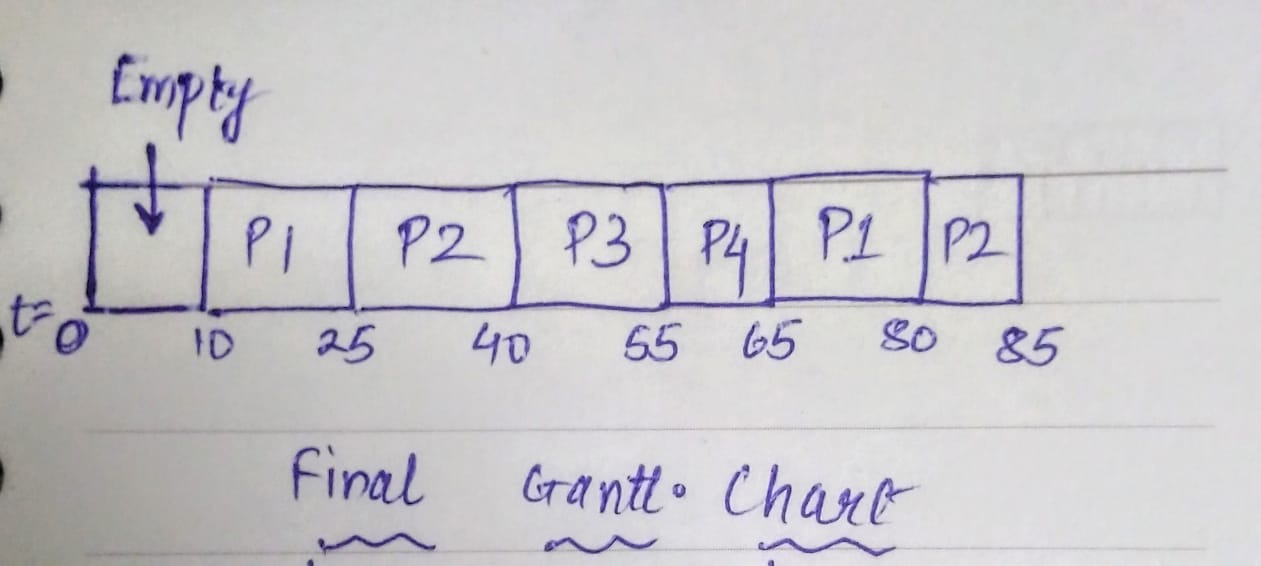 Empty
P1 P2 P3 P4 P1 P2
t=0 10 25 40 55 65 80 85
Final Gantt. Chart